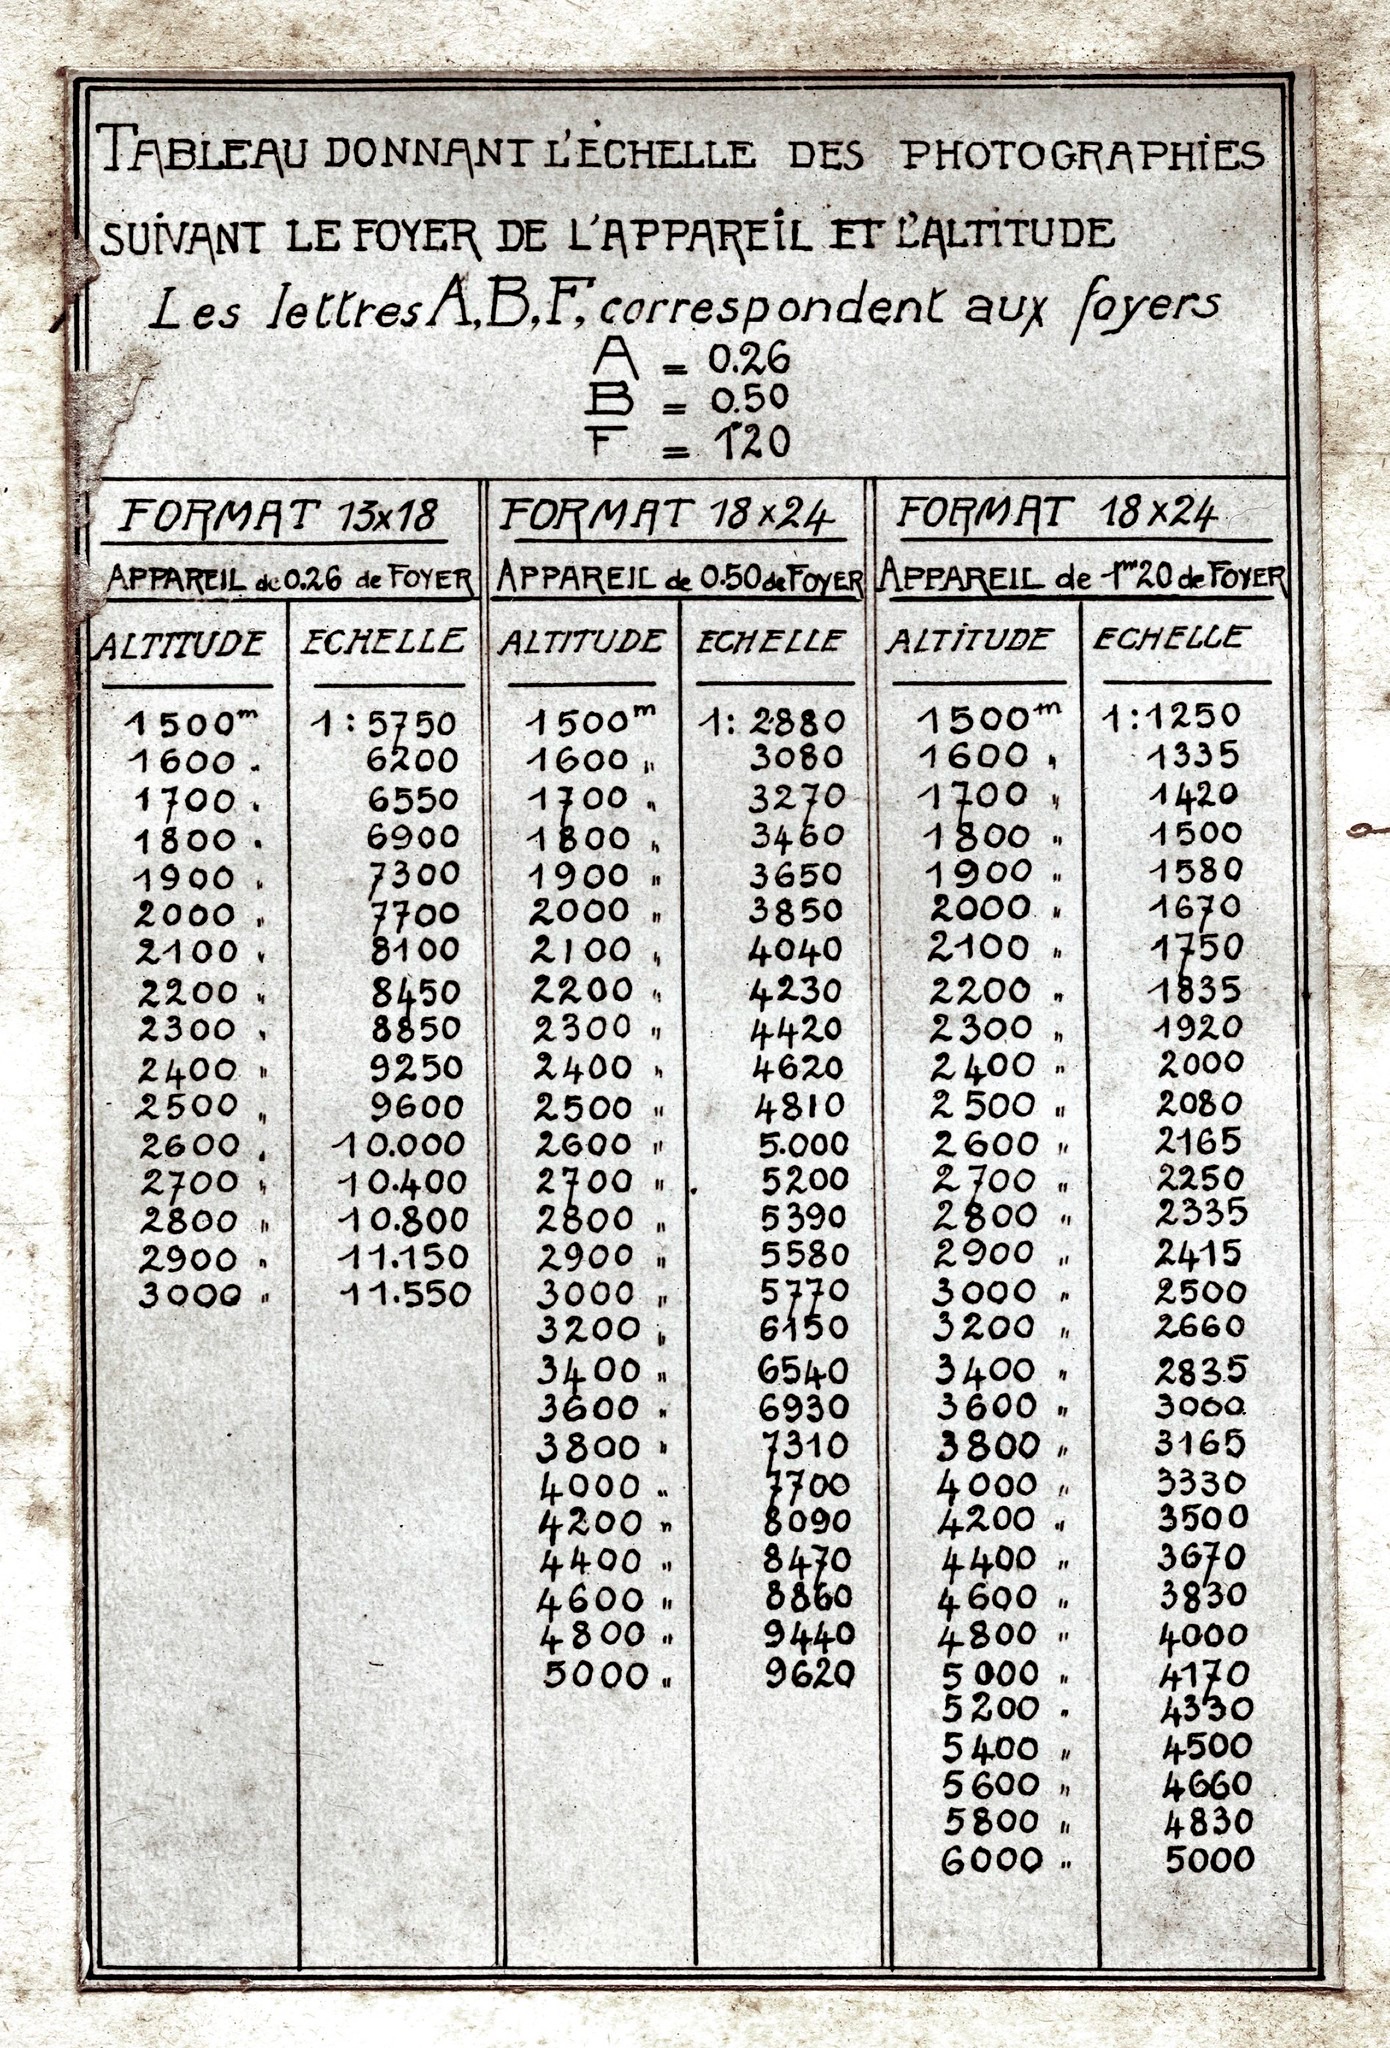 TABLEAU DONNANT L'ÉCHELLE DES PHOTOGRAPHIES
SUIVANT LE FOYER DE L'APPAREIL ET L'ALTITUDE
Les lettres A, B, F, correspondent aux foyers
A = 0.26
B = 0.50
F = 1m20
FORMAT 13x18 FORMAT 18x24 FORMAT 18x24
APPAREIL de 0.26 de FOYER APPAREIL de 0.50 de FOYER APPAREIL de 1m20 de FOYER
ALTITUDE ECHELLE ALTITUDE ECHELLE ALTITUDE ECHELLE
1500m 1:5750 1500m 1:2880 1500m 1:1250
1600 " 6200 1600 " 3080 1600 " 1335
1700 " 6550 1700 " 3270 1700 " 1420
1800 " 6900 1800 " 3460 1800 " 1500
1900 " 7300 1900 " 3650 1900 " 1580
2000 " 7700 2000 " 3850 2000 " 1670
2100 " 8100 2100 " 4040 2100 " 1750
2200 " 8450 2200 " 4230 2200 " 1835
2300 " 8850 2300 " 4420 2300 " 1920
2400 " 9250 2400 " 4620 2400 " 2000
2500 " 9600 2500 " 4810 2500 " 2080
2600 " 10.000 2600 " 5.000 2600 " 2165
2700 " 10.400 2700 " 5200 2700 " 2250
2800 " 10.800 2800 " 5390 2800 " 2335
2900 " 11.150 2900 " 5580 2900 " 2415
3000 " 11.550 3000 " 5770 3000 " 2500
3200 " 6150 3200 " 2660
3400 " 6540 3400 " 2835
3600 " 6930 3600 " 3000
3800 " 7310 3800 " 3165
4000 " 7700 4000 " 3330
4200 " 8090 4200 " 3500
4400 " 8470 4400 " 3670
4600 " 8860 4600 " 3830
4800 " 9440 4800 " 4000
5000 " 9620 5000 " 4170
5200 " 4330
5400 " 4500
5600 " 4660
5800 " 4830
6000 " 5000